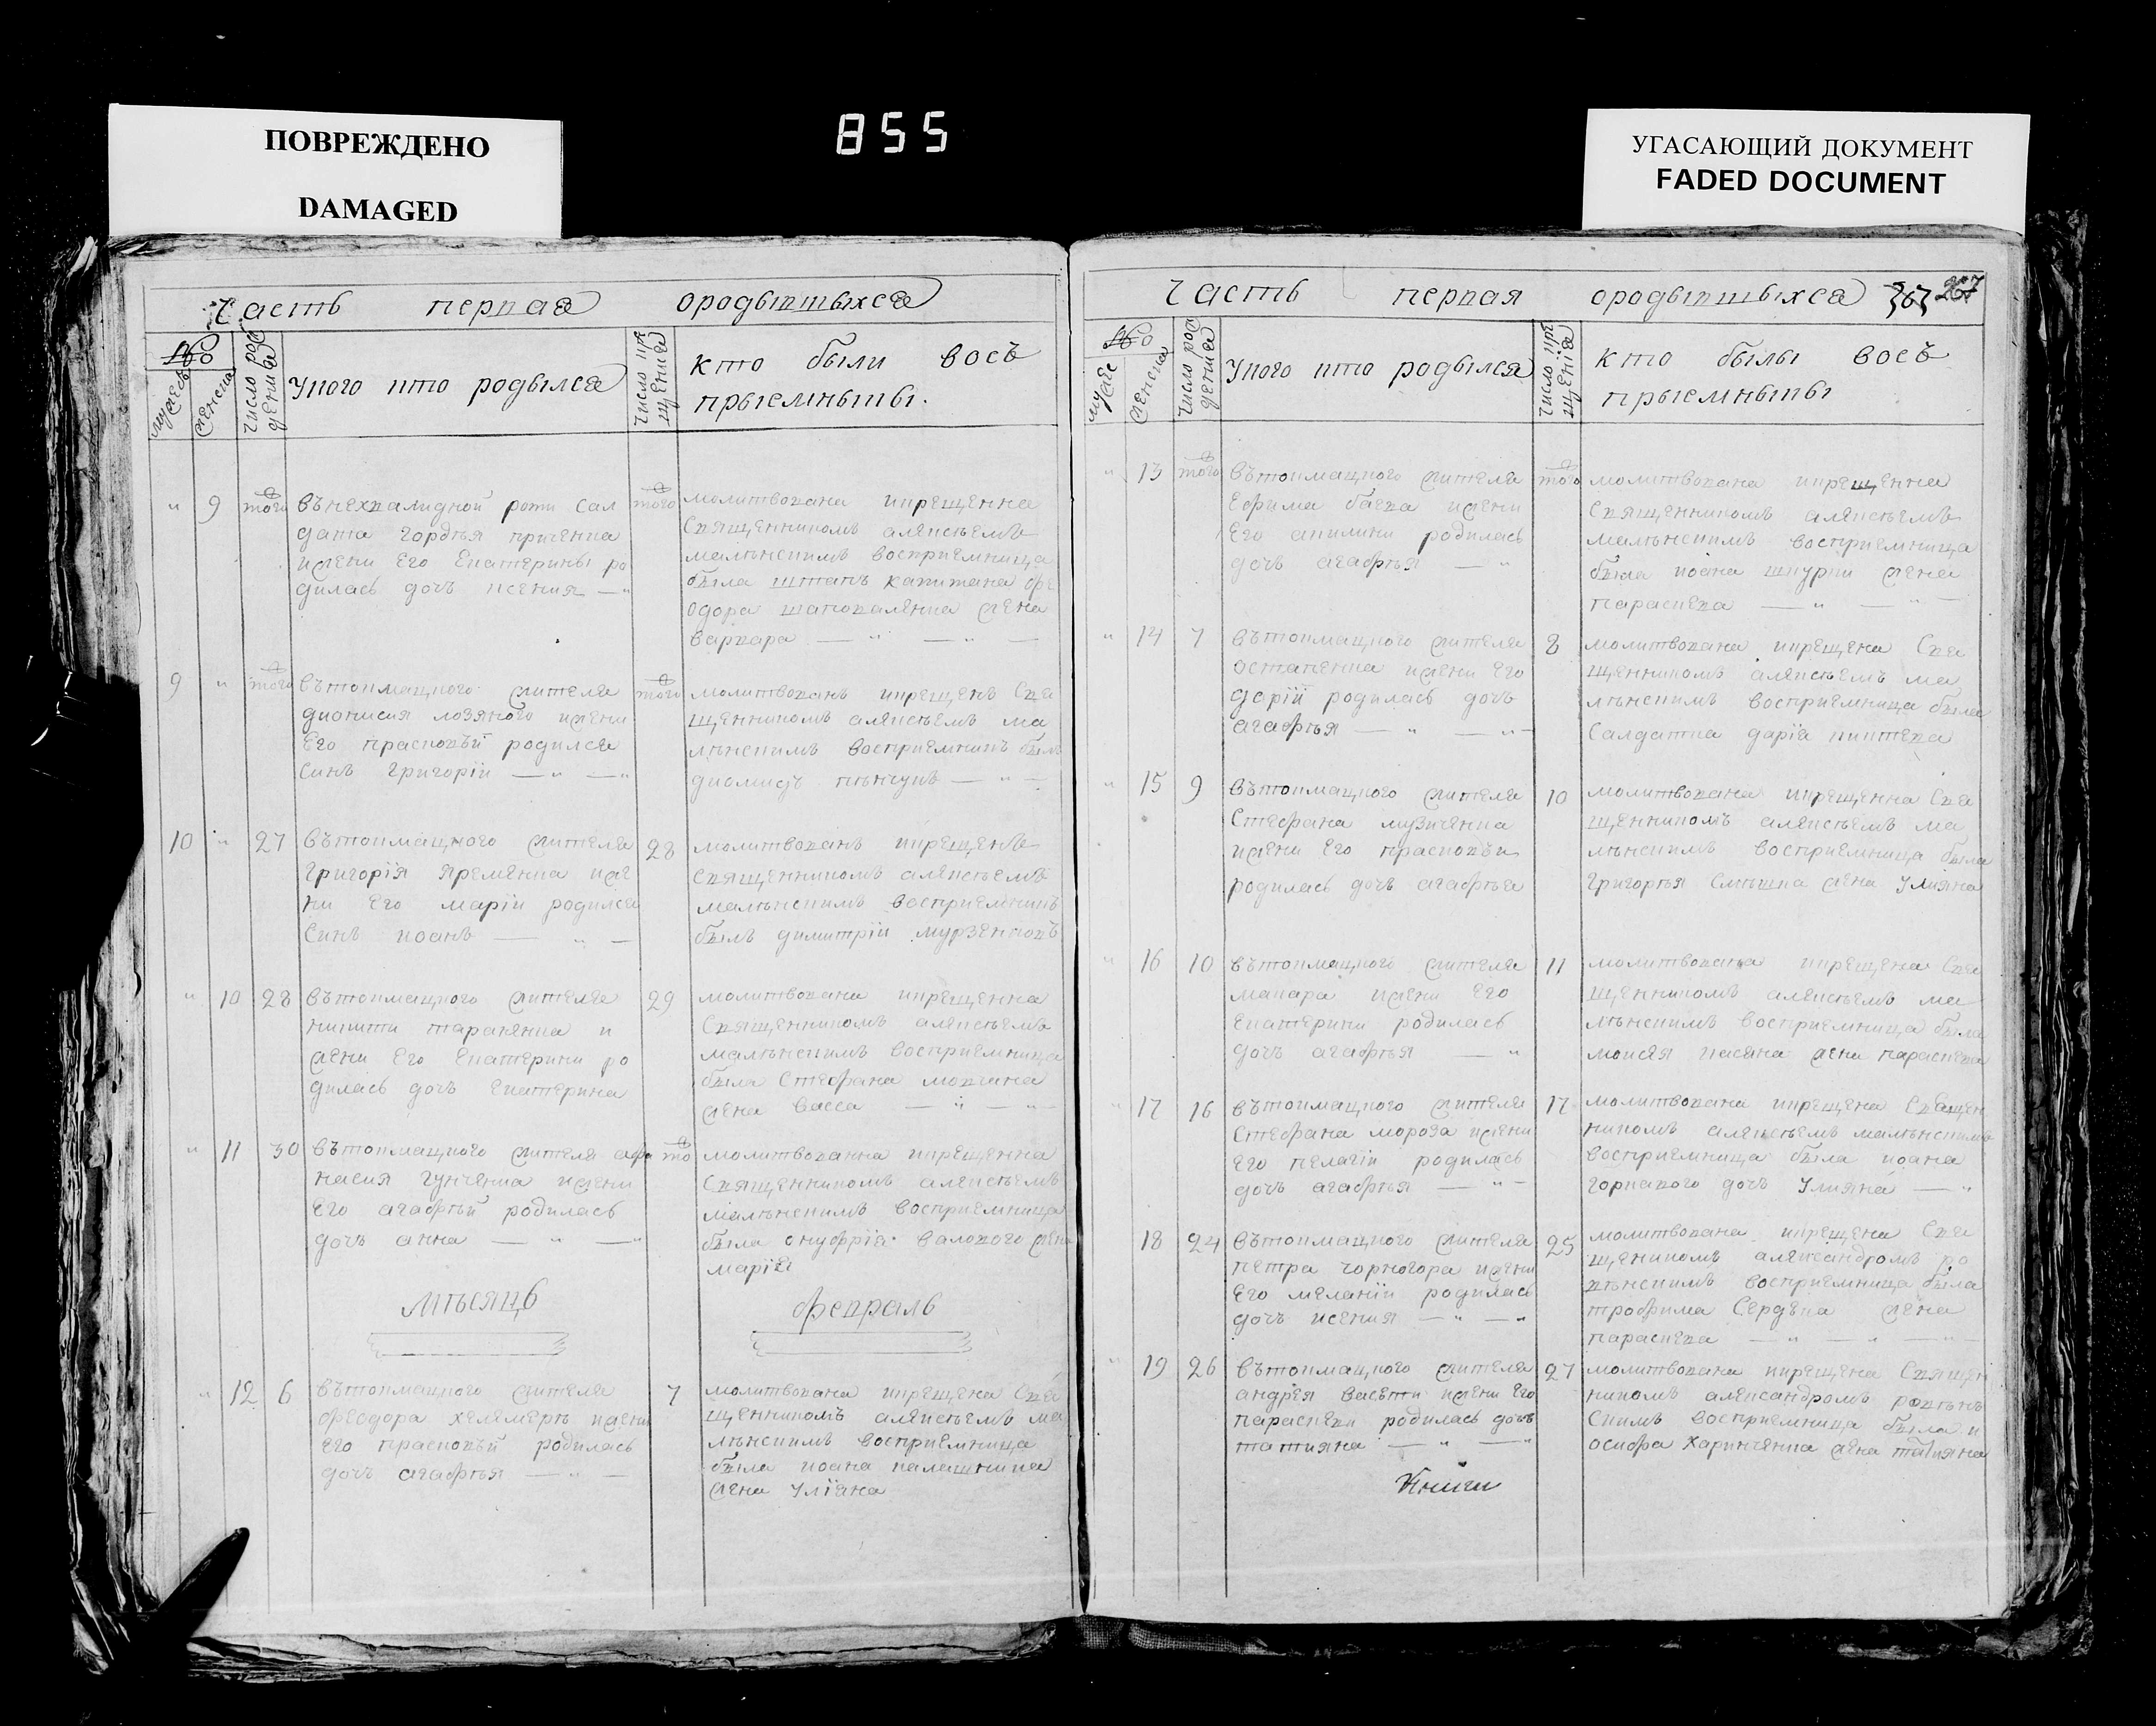 ПОВРЕЖДЕНО
DAMAGED
855
УГАСАЮЩИЙ ДОКУМЕНТ
FADED DOCUMENT
Часть первая ородывшыхся
№
мужеск
женска
Число рождения
Укого кто родылся
Число крщения
кто были восъ
прыемныкы.
" 9 того
вънехвалидной роти сал
дата гордѣя
жени Его Екатерины ро
дилась дочъ ксения — "
того
молитвована икрещенна
Священникомъ алексѣемъ
малѣнскимъ восприемница
была штапъ капитана фе
одора шаповаленка жена
варвара — " — " —
9 " того
Вътокмацкого жителя
дионисия лозяного жени
Его прасковѣй родился
Синъ григорій — " — "
того
молитвованъ икрещенъ Свя
щенникомъ алексѣемъ ма
лѣнскимъ восприемникъ былъ
диомидъ — " —
10 " 27
Вътокмацкого жителя
Григорія Яременка иже
ни Его маріи родился
Синъ иоанъ — " —
28
молитвованъ икрещенъ
Священникомъ алексѣемъ
малѣнскимъ восприемникъ
былъ димитрій мурзенковъ
" 10 28
Вътокмацкого жителя
никити тараненка и
жени Его Екатерини ро
дилась дочъ Екатерина
29
молитвована икрещенна
Священникомъ алексѣемъ
малѣнскимъ восприемница
была Стефана мовчана
жена васса — " — " —
" 11 30
Вътокмацкого жителя афа
насия гунченка жени
Его агафѣй родилась
дочъ анна — " — "
то
молитвованна икрещенна
Священникомъ алексѣемъ
малѣнскимъ восприемница
была онуфрія валового жена
марія
Мѣсяцъ февраль
" 12 6
Вътокмацкого жителя
феодора жени
Его прасковѣй родилась
дочъ агафѣя — " —
7
молитвована икрещена Свя
щенникомъ алексѣемъ ма
лѣнскимъ восприемница
была иоана калашника
жена Уліяна
Часть первая ородывшыхся 367 267
№
мужес
женска
Число рождения
Укого кто родылся
Число крщенія
кто былы восъ
прыемныкы
" 13 того
Вътокмацкого жителя
Ефима баева жени
Его акилини родилась
дочъ агафѣя — "
того
молитвована икрещенна
Священникомъ алексѣемъ
малѣнскимъ восприемница
была иоана шкурки жена
параскева — " — " —
" 14 7
Вътокмацкого жителя
остапенка жени Его
дарій родилась дочъ
агафѣя — " — " —
8
молитвована икрещена Свя
щенникомъ алексѣемъ ма
лѣнскимъ восприемница была
Салдатка дарія
" 15 9
Вътокмацкого жителя
Стефана музиченка
жени Его прасковѣи
родилась дочъ агафѣя
10
молитвована икрещенна Свя
щенникомъ алексѣемъ ма
лѣнскимъ восприемница была
григорѣя Смѣшка жена Улияна
" 16 10
Вътокмацкого жителя
макара жени Его
Екатерини родилась
дочъ агафѣя — "
11
молитвована икрещена Свя
щенникомъ алексѣемъ ма
лѣнскимъ восприемница была
моисѣя касяна жена параскева
" 17 16
Вътокмацкого жителя
Стефана мороза жени
Его пелагіи родилась
дочъ агафѣя — " —
17
молитвована икрещена Священ
никомъ алексѣемъ малѣнскимъ
восприемница была иоана
горнакого дочъ Улияна — "
18 24
Вътокмацкого жителя
петра чорногора жени
Его меланіи родилась
дочъ ксения — " — "
25
молитвована икрещена Свя
щеникомъ александромъ ро
вѣнскимъ восприемница была
трофима Сердѣка жена
параскева — " — " — " —
" 19 26
Вътокмацкого жителя
андрея васети жени Его
параскеви родилась дочъ
татияна — " — "
27
молитвована икрещена Священ
никомъ александромъ ровѣн
скимъ восприемница была и
осифа Харинченка жена татияна
Книги